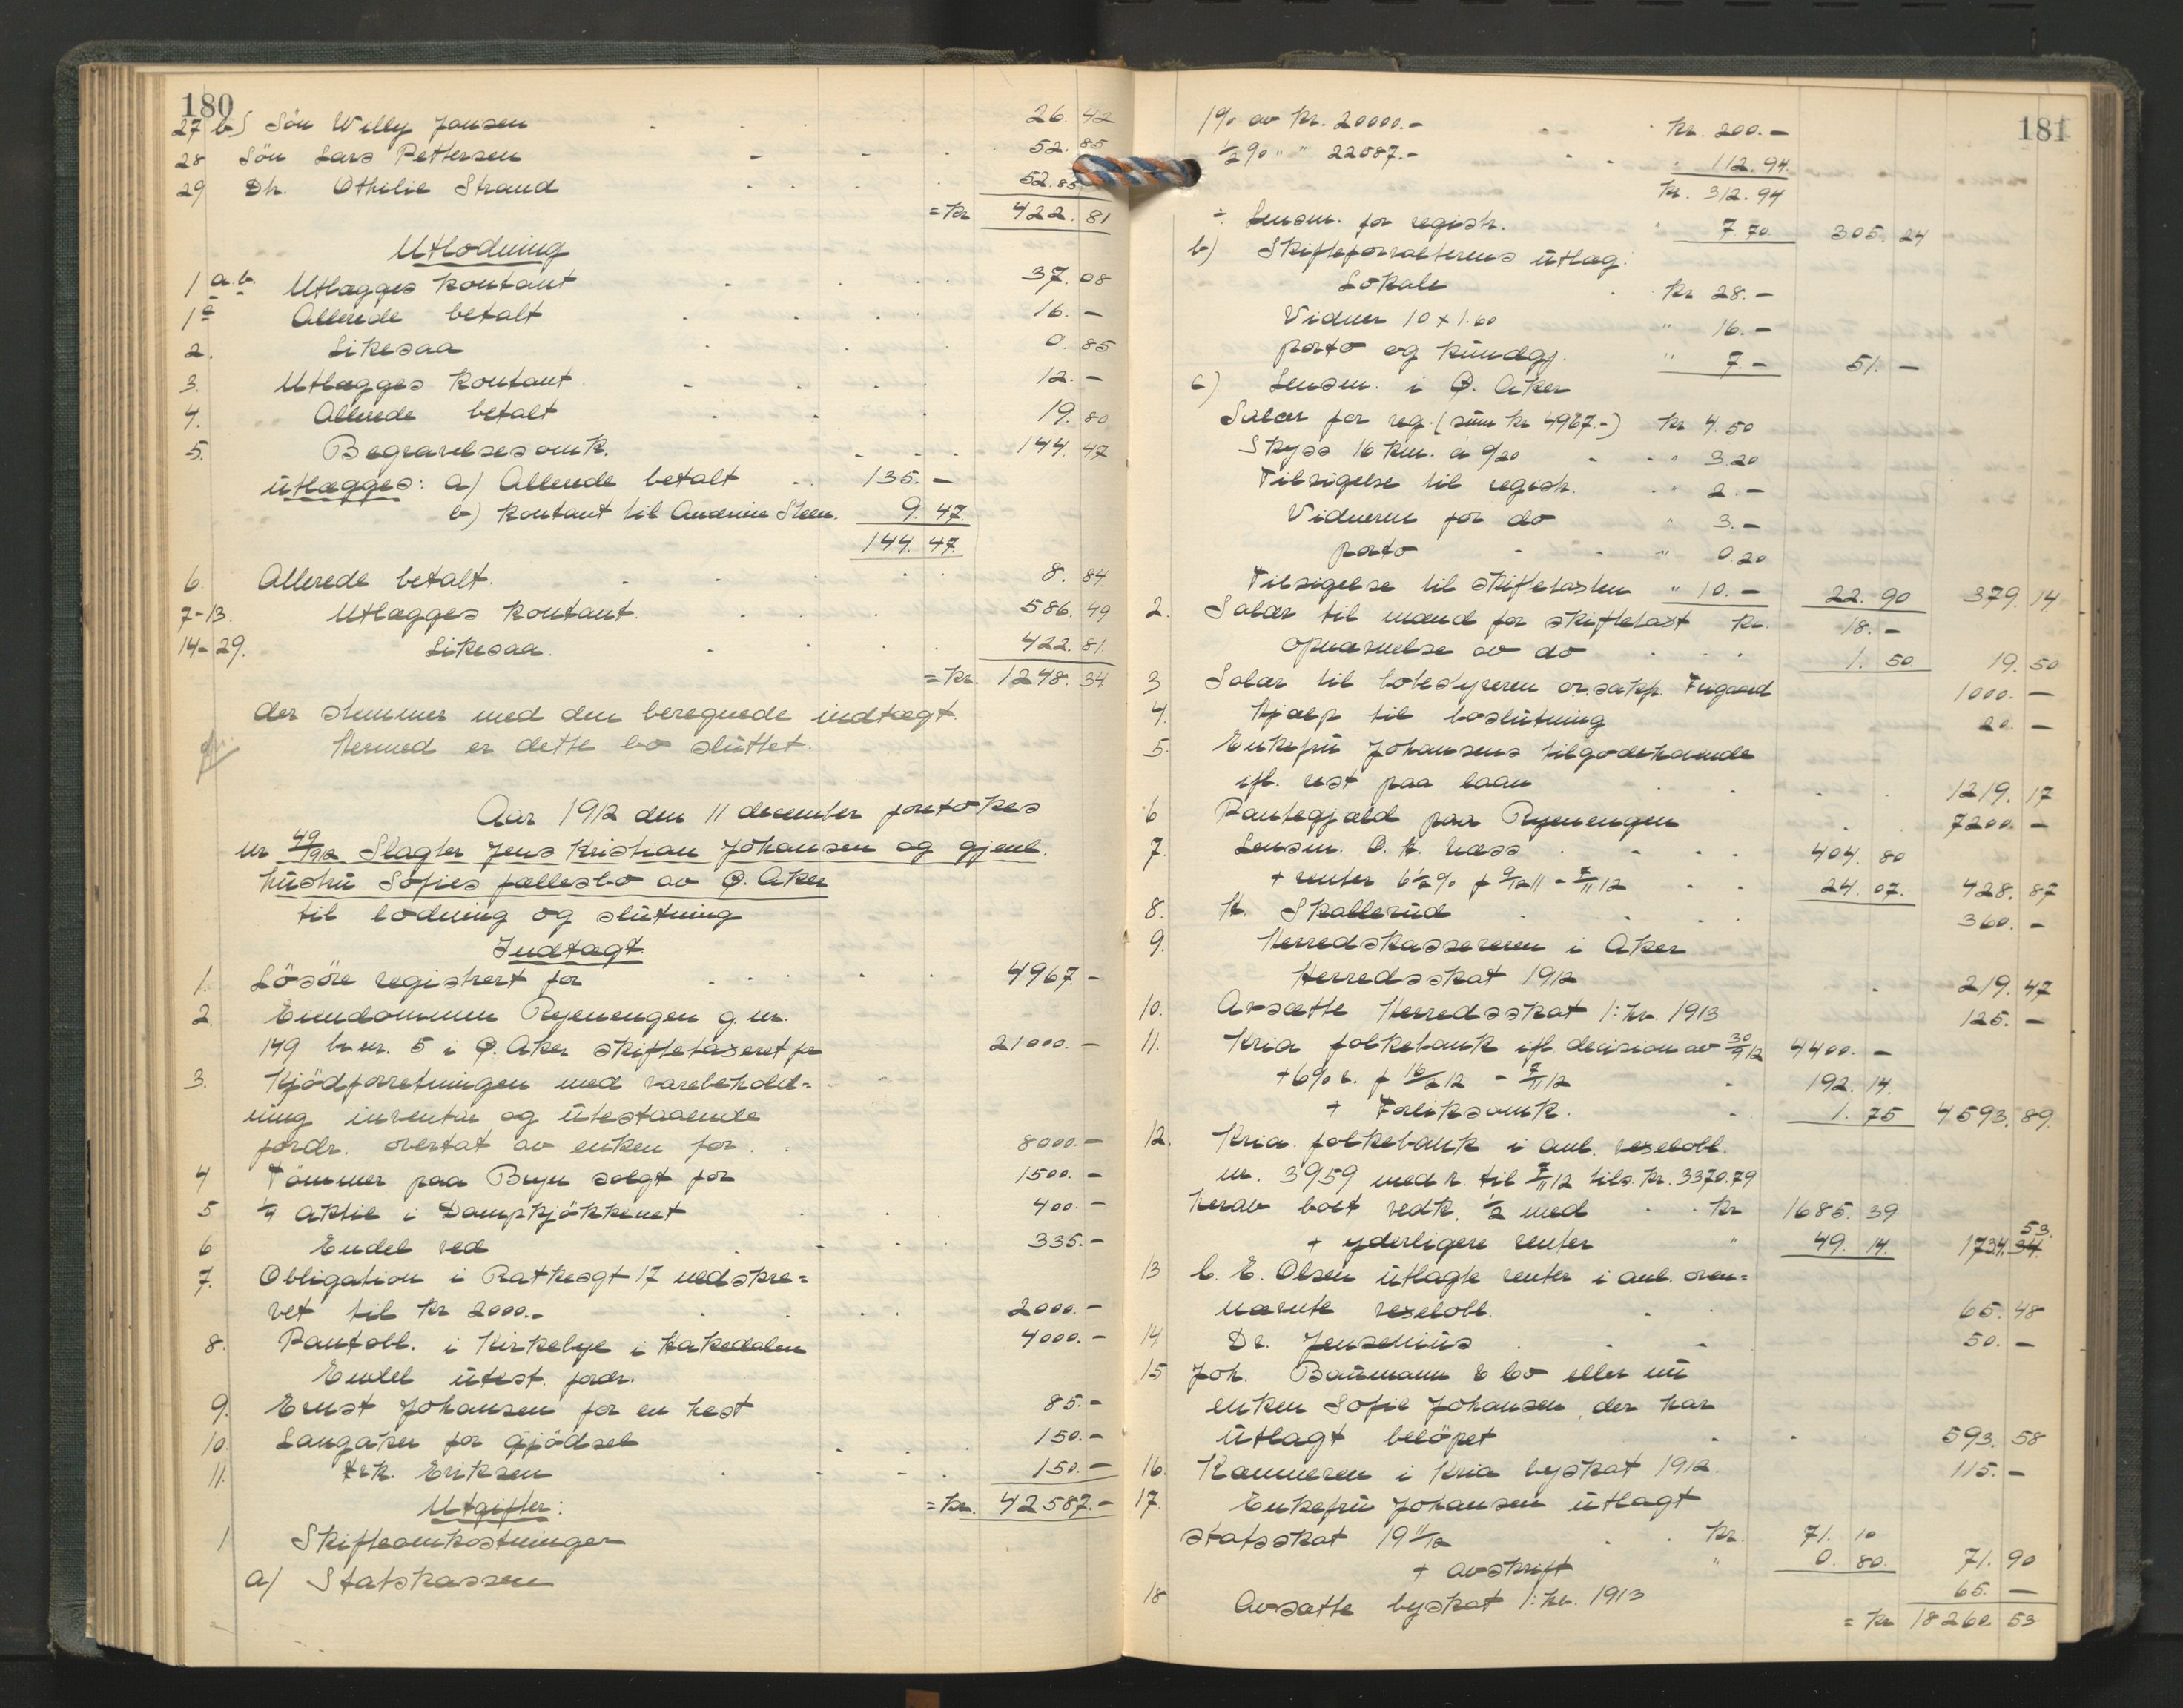 180
27 b) Sön Willy Jansen 26. 42
28 Sön Lars Pettersen 52. 85
29 Dtr. Othilie Strand 52. 85
= Kr 422. 81
Utlodning
1 a.b. Utlægges kontant 37. 08
1 c Allerede betalt 16. -
2. Likesaa 0. 85
3. Utlægges kontant 12. -
4. Allerede betalt 19. 80
5. Begravelsesomk. 144. 47
utlægges: a) Allerede betalt 135. -
b) kontant til Andrine Steen. 9. 47
144. 47.
6. Allerede betalt. 8. 84
7-13. Utlægges kontant. 586. 49
14-29. Likesaa. 422. 81.
= Kr. 1248. 34
der stemmer med den beregnede indtægt.
Hermed er dette bo sluttet.
Aar 1912 den 11 december foretokes
nr 49/912 Slagter Jens Kristian Johansen og gjenl.
hustru Sofies fællesbo av Ø. Aker
til lodning og slutning
Indtægt
1. Lösöre registrert for 4967. -
2. Eiendommen Ryenengen g. nr.
149 br.nr. 5 i Ø. Aker skiftetaxeret for 21000. -
3. Kjödforretningen med varebehold=
ning inventar og utestaaende
fordr. overtat av enken for 8000. -
4 Tömmer paa Bryn solgt for 1500. -
5 1/4 aktie i Dampkjökkenet 400. -
6 Endel ved 335. -
7. Obligation i Ratkesgt 17 nedskre=
vet til Kr 2000.- 2000. -
8. Pantobl. i Kirkebye i Hakedalen 4000. -
Endel utest. fordr.
9. Ernst Johansen for en hest 85. -
10. Langaker for gjödsel 150. -
11. Frk. Eriksen 150. -
= Kr. 42587. -
Utgifter:
1 Skifteomkostninger
a) Statskassen
181
1% av Kr. 20000.- Kr. 200. -
1/2% " " 22587.- " 112. 94.
Kr. 312. 94
÷ Lensm. for registr. " 7. 70. 305. 24
b) Skifteforvalterens utlæg.
Lokale Kr 28. -
Vidner 10 x 1.60 " 16. -
porto og kundgj. " 7. - 51. -
c) Lensm. i Ø. Aker
Salær for reg. (sum kr 4967.-) Kr 4. 50
Skyss 16 km. á 0/20 " 3. 20
Tilsigelse til registr. " 2. -
Vidneren for do " 3. -
porto " 0. 20
Tilsigelse til skiftetaxten " 10. - 22. 90 379. 14
2. Salær til mænd for skiftetaxt Kr. 18. -
opnævnelse av do 1. 50 19. 50
3 Salær til bobestyreren o.r.sakf. Fugaard 1000. -
4. Hjælp til boslutning 20. -
5. Enkefru Johansens tilgodehavende
ifl. rest paa laan 1219. 17
6 Pantegjæld paa Ryenengen 7200. -
7. Lensm. O. H. Næss 404. 80
+ renter 6 1/2 % f 9/12 11 - 7/11 12 24. 07. 428. 87
8. H. Skallerud 360. -
9. Herredskassereren i Aker
Herredsskat 1912 219. 47
10. Avsætte Herredsskat 1. hv. 1913 125. -
11. Kria folkebank ifl. decision av 30/9 12 4400. -
+ 6% r. f 16/2 12 - 7/11 12 192. 14.
+ Forliksomk. 1. 75 4593. 89.
12. Kria. folkebank i anl. vexelobl.
nr. 3959 med r. til 7/11 12 tils. Kr. 3370.79
herav boet vedk. 1/2 med Kr 1685. 39
+ yderligere renter " 49. 14. 1734. 53.
13 C. E. Olsen utlagte renter i anl. oven=
nævnte vexelobl. 65. 48
14 Dr. Jensenius 50. -
15 Joh. Baumann & Co eller nu
enken Sofie Johansen, der har
utlagt belöpet 593. 58
16. Kæmneren i Kria byskat 1912. 115. -
17. Enkefru Johansen utlagt
statsskat 19 11/12 Kr. 71. 10
+ avskrift " 0. 80. 71. 90
18 Avsætte byskat 1. hv. 1913 65. -
= Kr 18260. 53